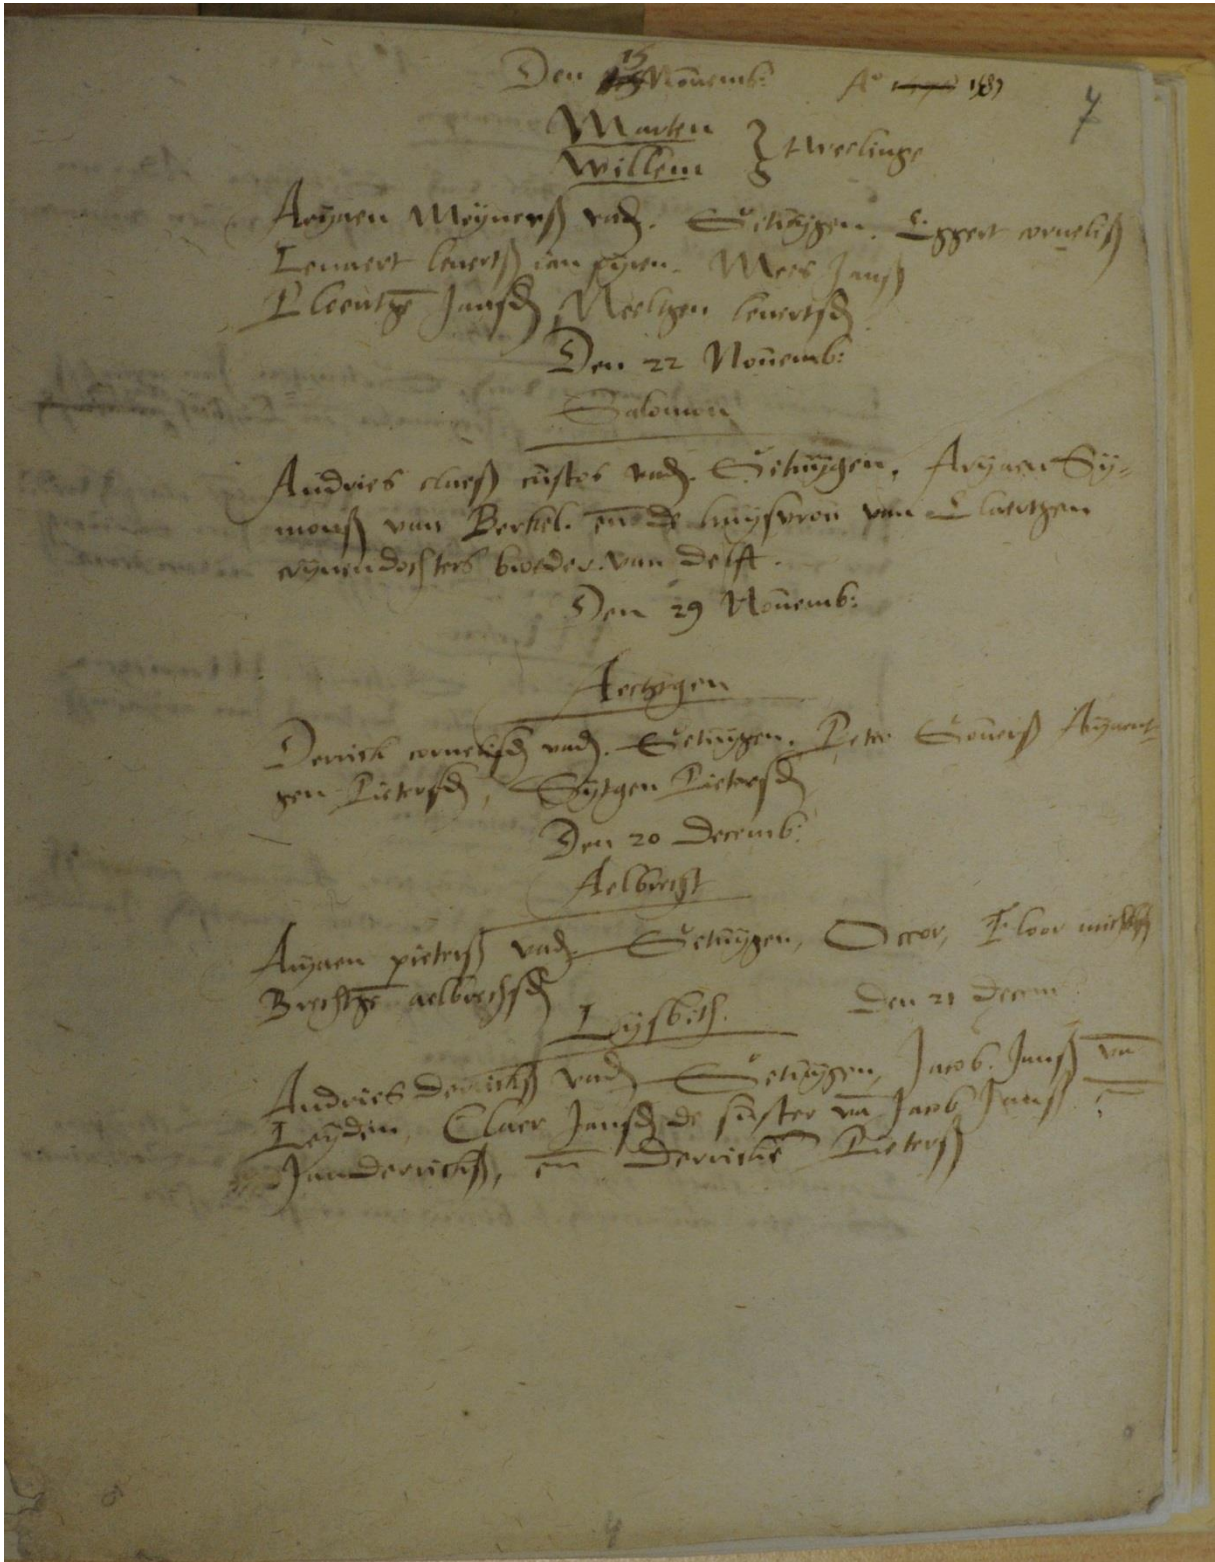 Den 15 Novemb: Aº 1587
7
Marten
Willem } tweelinge
Arijaen Meijnerß vad. Getuijgen. Eggert corneliß
Lenaert lenertß van Mees Janß
Pleentge Jansd, Neeltgen lenertsd
Den 22 Novemb:
Salomon
Andries claeß custos vad. Getuijgen. Arijaen Sij=
monß van Berkel. en de huijsvrou van Claertgen
crijnendochters broeder van delft.
Den 29 Novemb:
Aechtgen
Derrick cornelisd vad. Getuijgen. Peter Goverß Arijaent-
gen Pietersd, Sijtgen Pietersd
Den 20 Decemb:
Aelbrecht
Arijaen pieterß vad. Getuijgen, Floor
Brechtge aelbrechsd
Den 21 Decem
Lijsbith.
Andries Derrickß vad Getuijgen, Jacob Janß va
Leijden, Claer Jansd de suster va Jacob Janß
Jan derrickß, en Derricke Pieterß